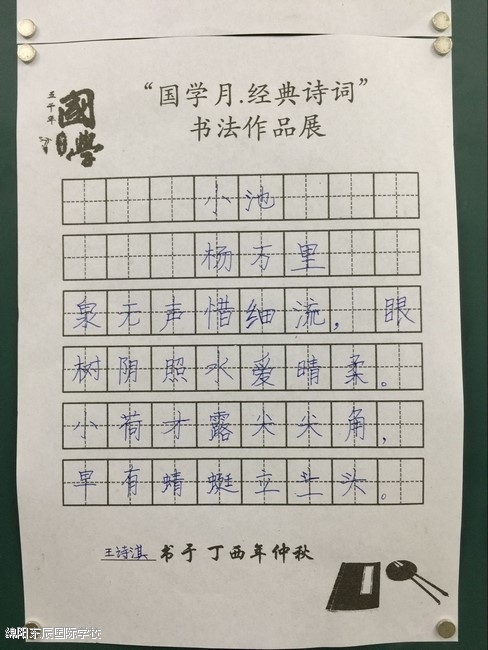 五千年
國學
“国学月.经典诗词”
书法作品展
小池
杨万里
泉无声惜细流，眼
树阴照水爱晴柔。
小荷才露尖尖角，
早有蜻蜓立上头。
王诗淇 书于 丁酉年仲秋
绵阳东辰国际学校